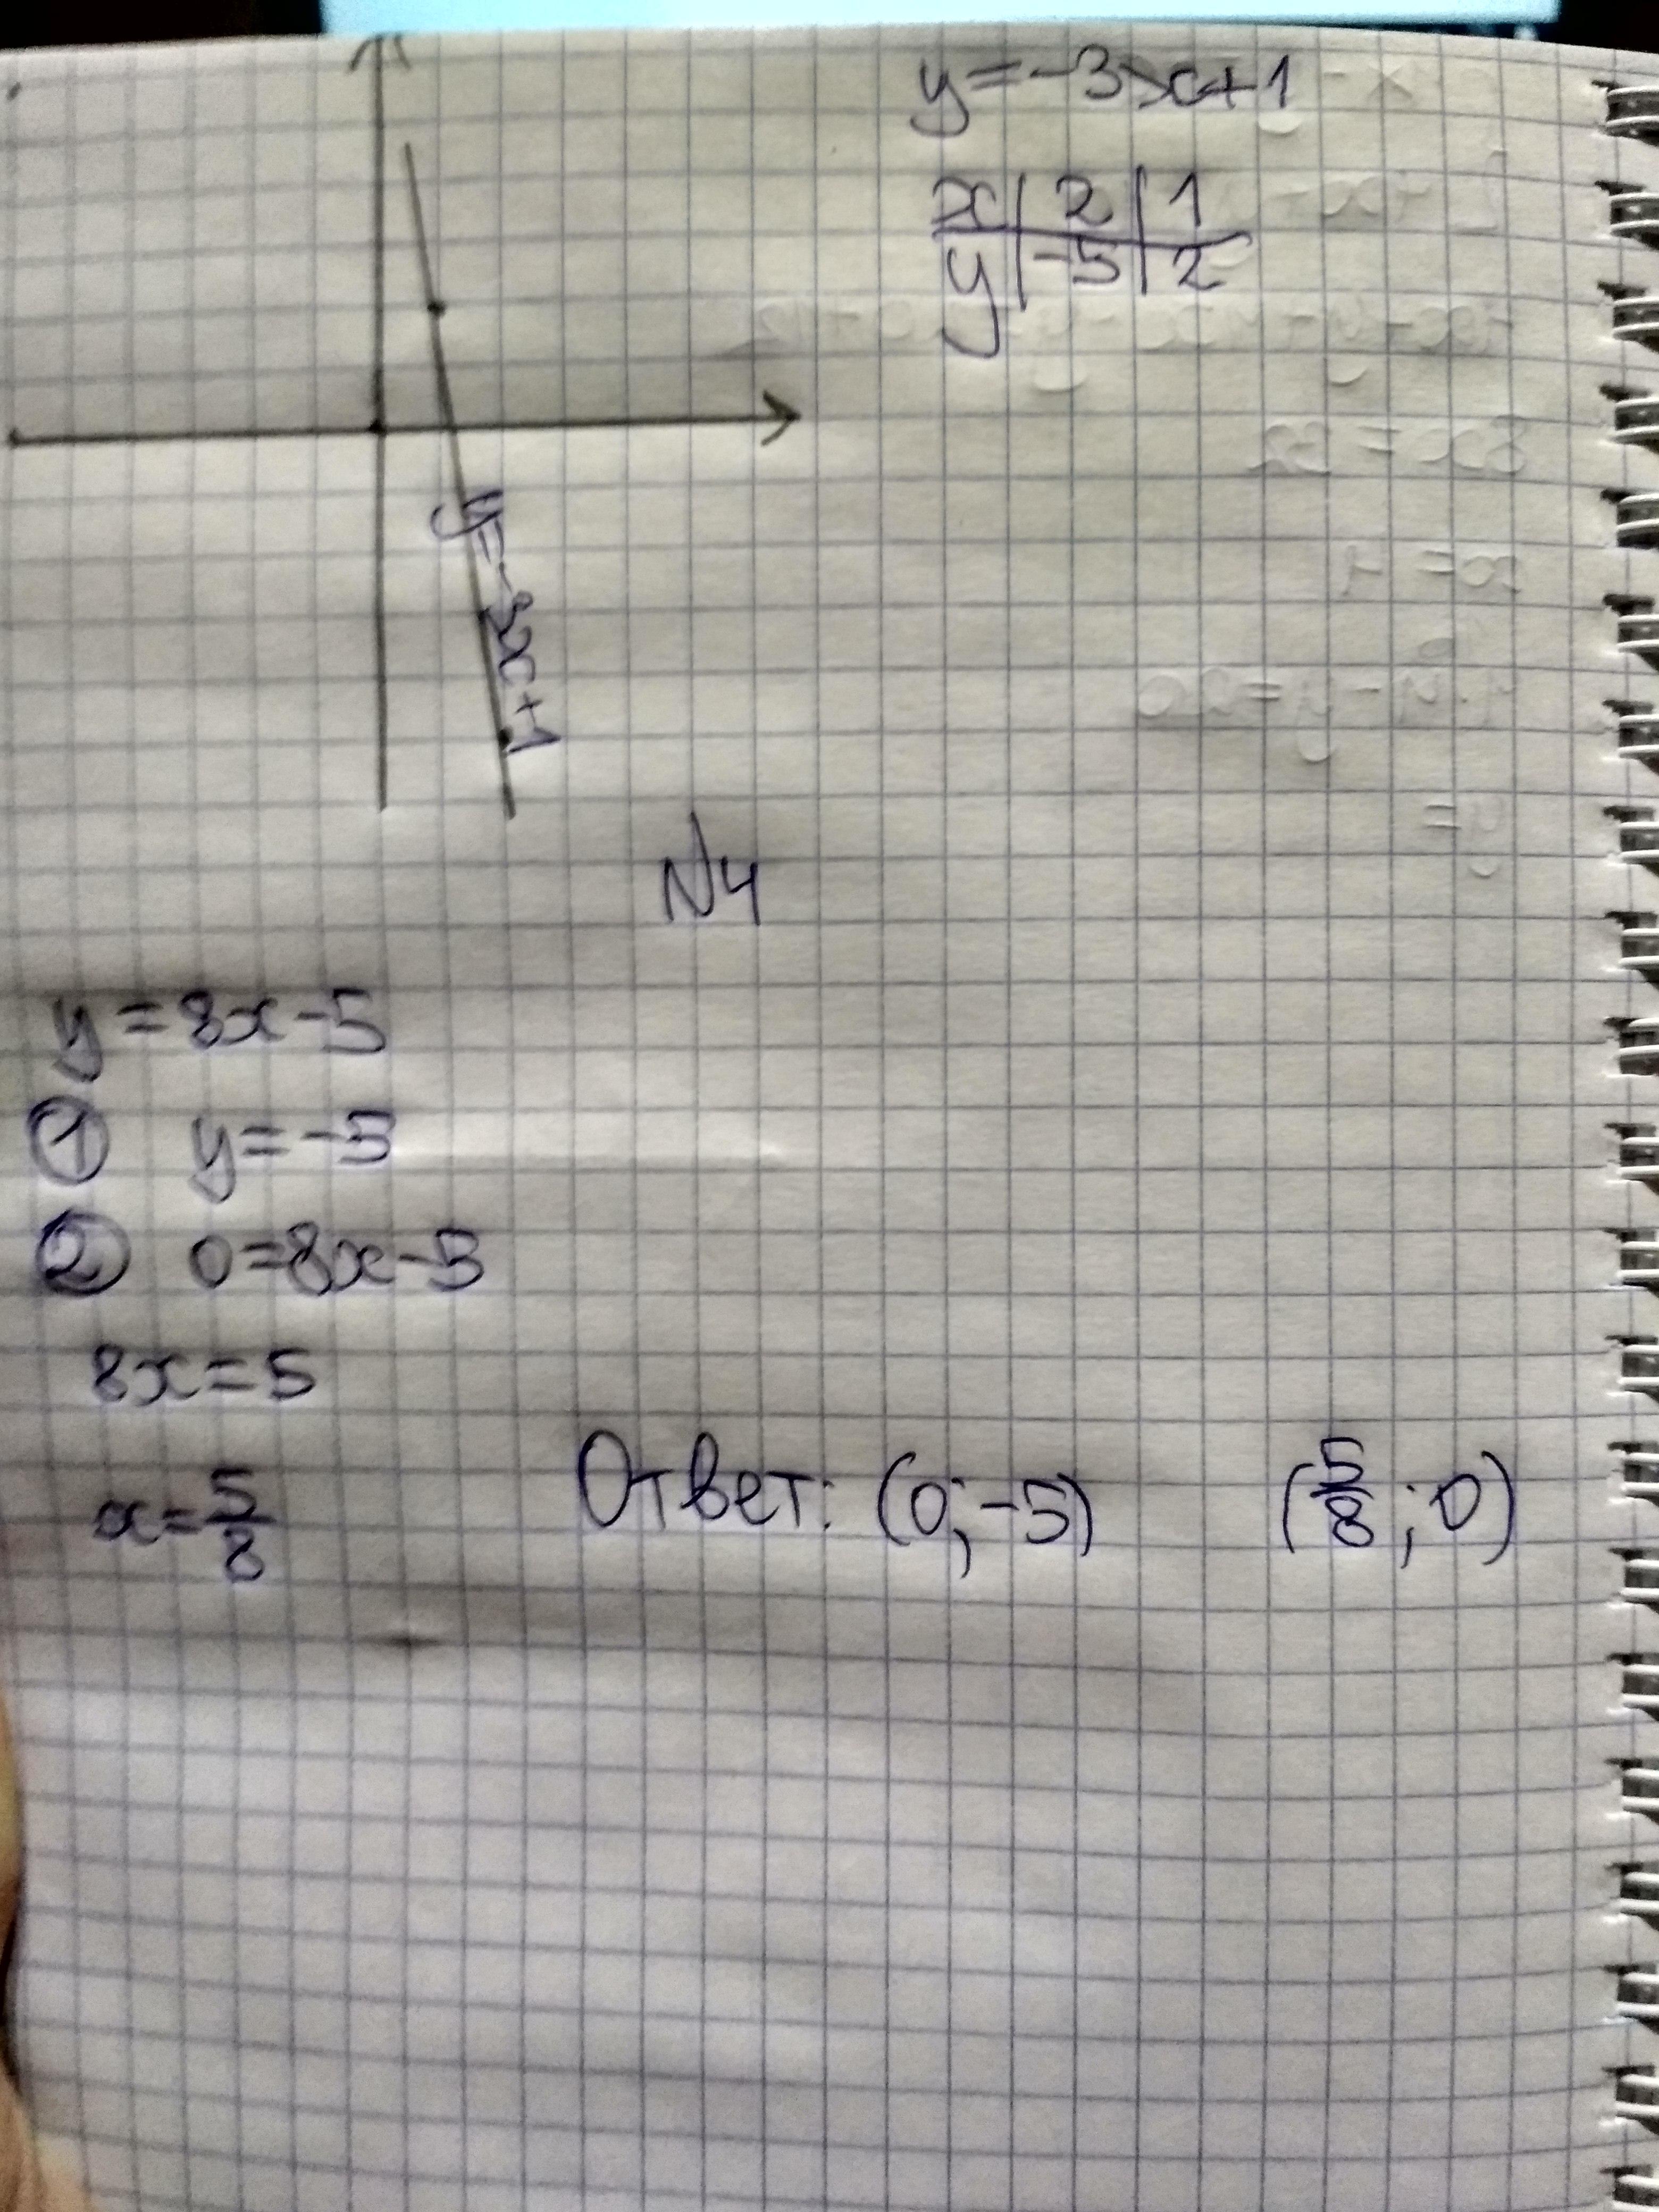 y=-3x+1
x | 2 | 1
y | -5 | 2
y=-3x+1
N4
y=8x-5
① y=-5
② 0=8x-5
8x=5
x=5/8
Ответ: (0;-5) (5/8;0)